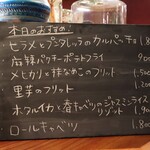 本日のおすすめ
ヒラメとプンタレッラのカルパッチョ 1.8
麻辣パクチーポテトフライ 900
メヒカリと抹なめこのフリット 1.500
里芋のフリット 1.200
ホタルイカと春キャベツのジャスミンライス
リゾット 1.800
ロールキャベツ 1.800